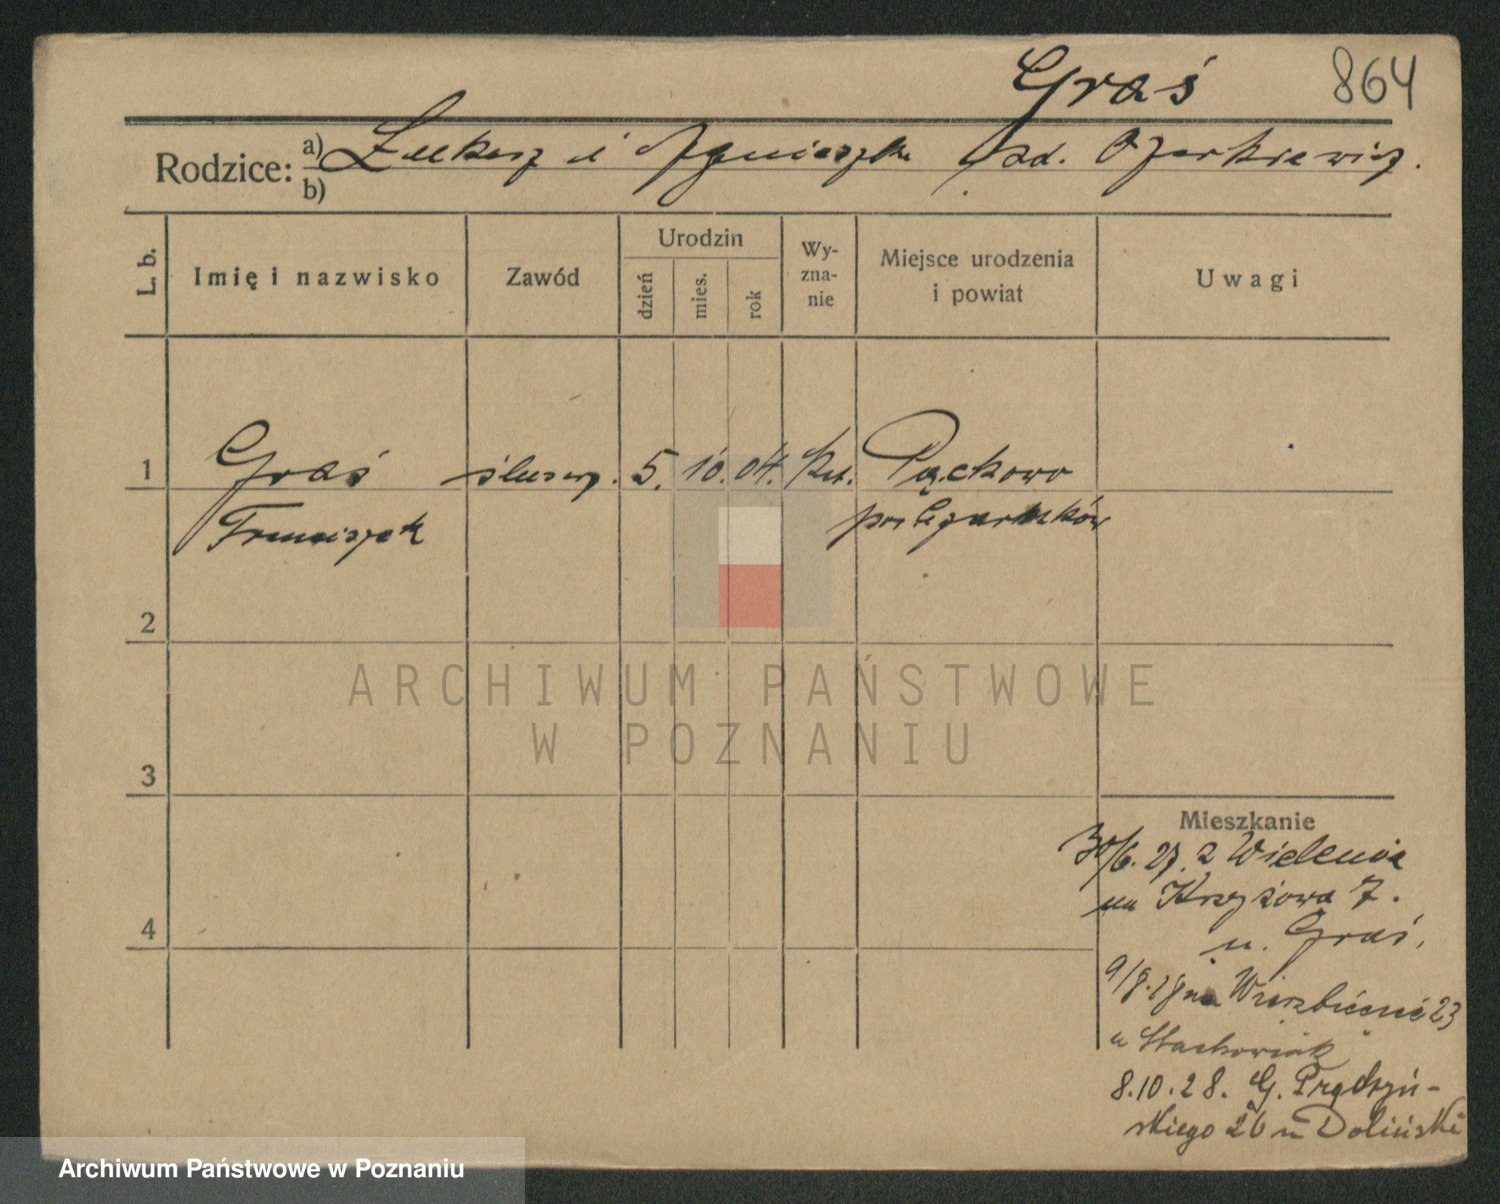 Graś 864
Rodzice: a) Łukasz i Agnieszka zd. Ożarkiewicz.
b)
L. b. Imię i nazwisko Zawód Urodzin dzień mies. rok Wy-zna-nie Miejsce urodzenia i powiat Uwagi
1 Graś ślusarz. 5. 10. 04. Kat. Pęckowo
Franciszek pow Czarnków
2
ARCHIWUM PAŃSTWOWE
W POZNANIU
3
Mieszkanie
30/6. 27. z Wielenia
na Krzyżowa 7.
4
u. Graś.
9/8. na Wierzbięcie 23
u Stachowiak
8.10.28. G. Prądzyń-
skiego 26 u Doliński
Archiwum Państwowe w Poznaniu